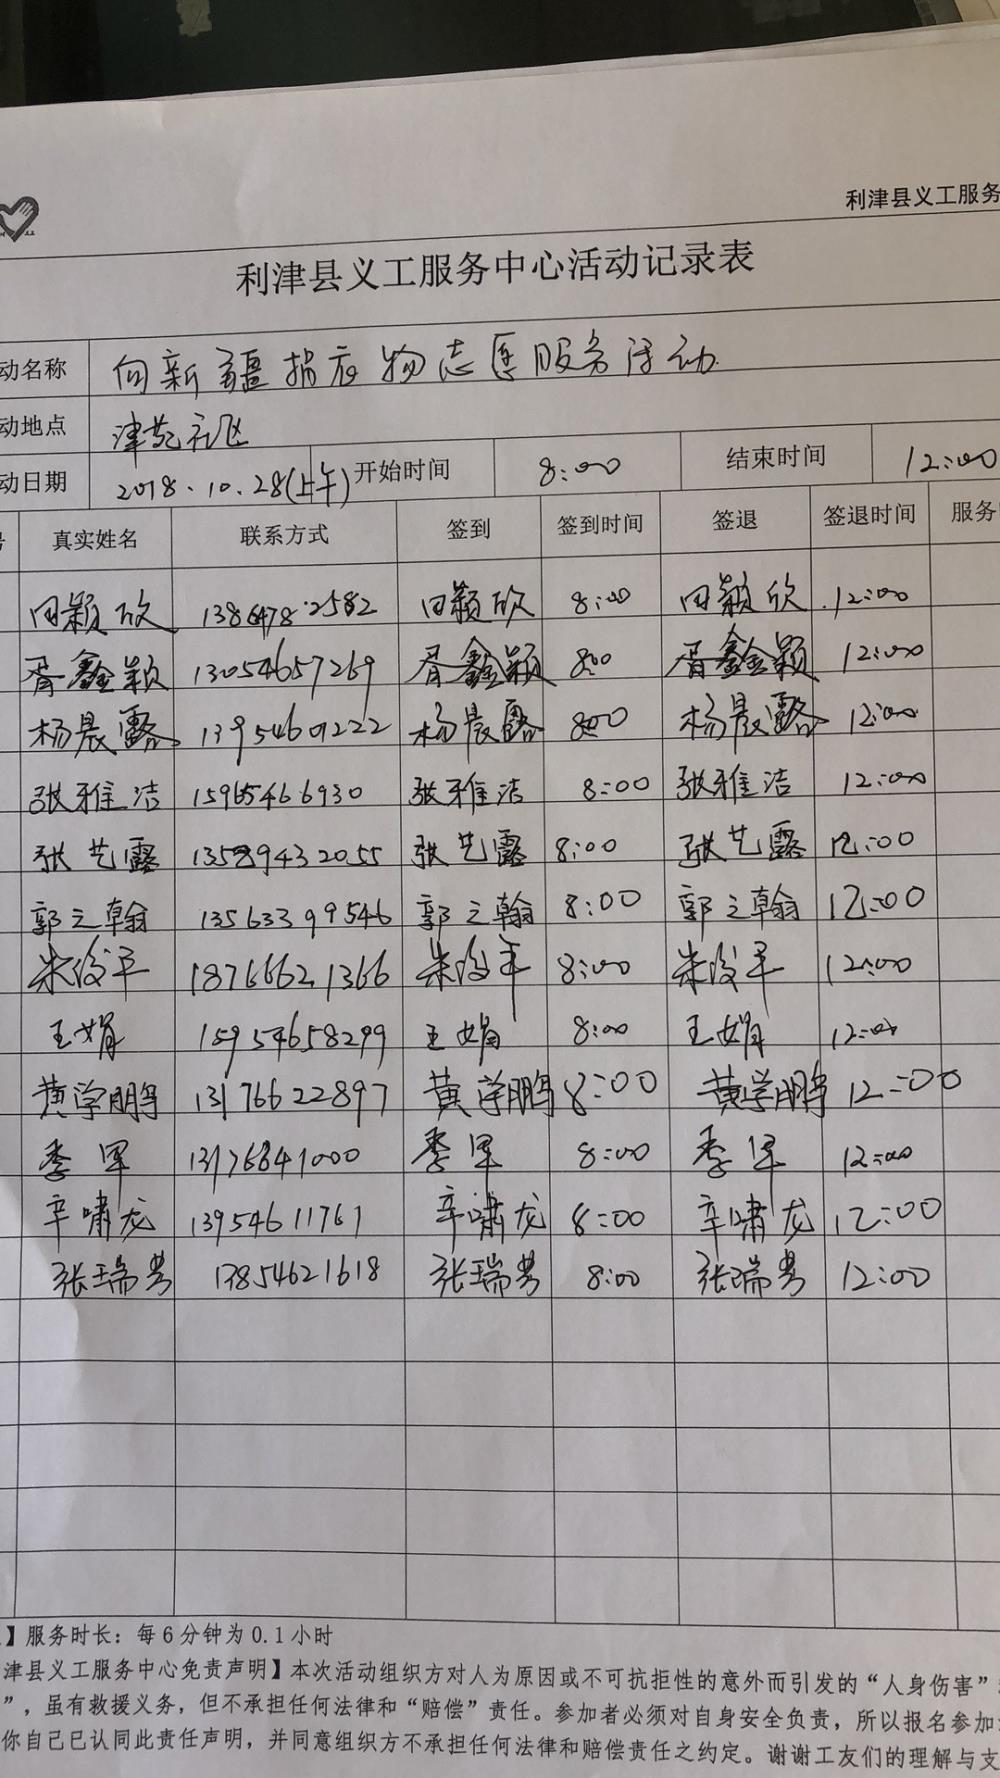 利津县义工服务
利津县义工服务中心活动记录表
动名称 向新疆捐衣物志愿服务活动
动地点 津苑社区
动日期 2018.10.28(上午) 开始时间 8:00 结束时间 12:00
号 真实姓名 联系方式 签到 签到时间 签退 签退时间 服务
田颖欣 13864782582 田颖欣 8:00 田颖欣 12:00
胥鑫颖 13054657269 胥鑫颖 8:00 胥鑫颖 12:00
杨晨露 13954601222 杨晨露 8:00 杨晨露 12:00
张雅洁 15965466930 张雅洁 8:00 张雅洁 12:00
张艺露 张艺露 8:00 张艺露 12:00
郭之翰 13563399546 郭之翰 8:00 郭之翰 12:00
朱俊平 18766621366 朱俊平 8:00 朱俊平 12:00
王娟 15954658299 王娟 8:00 王娟 12:00
黄学鹏 13176622897 黄学鹏 8:00 黄学鹏 12:00
季军 13176841000 季军 8:00 季军 12:00
辛啸龙 13954611761 辛啸龙 8:00 辛啸龙 12:00
张瑞芳 13854621618 张瑞芳 8:00 张瑞芳 12:00
】服务时长：每6分钟为0.1小时
津县义工服务中心免责声明】本次活动组织方对人为原因或不可抗拒性的意外而引发的“人身伤害”
”，虽有救援义务，但不承担任何法律和“赔偿”责任。参加者必须对自身安全负责，所以报名参加
你自己已认同此责任声明，并同意组织方不承担任何法律和赔偿责任之约定。谢谢工友们的理解与支